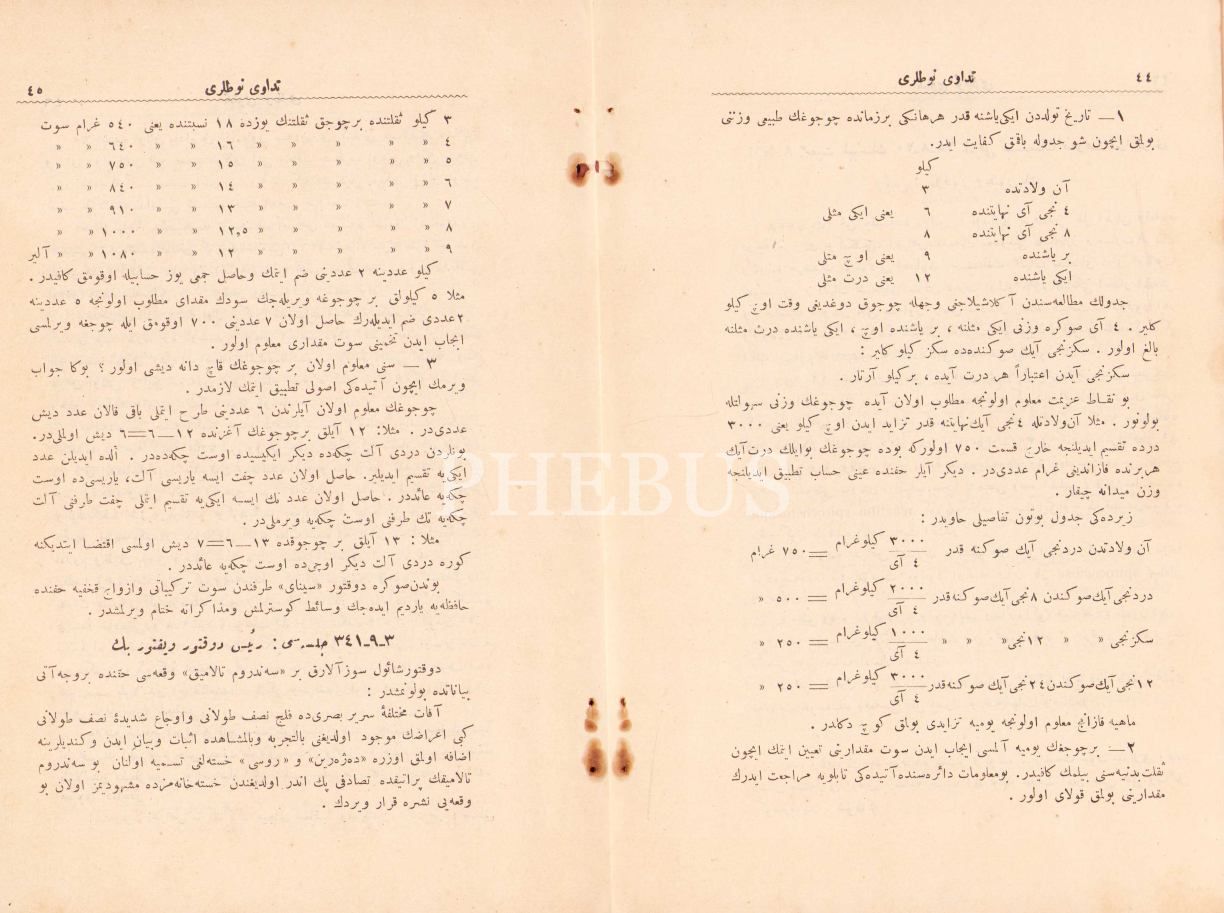 ٤٤
تداوی نوطلری
١ــ تاریخ تولددن ایکی‌یاشنه قدر هرهانکی برزمانده چوجوغك طبیعی وزننی
بولمق ایچون شو جدوله باقمق کفایت ایدر.
کیلو
آن ولادتده ٣
٤ نجی آی نهایتنده ٦ یعنی ایکی مثلی
٨ نجی آی نهایتنده ٨
بر یاشنده ٩ یعنی اوچ مثلی
ایکی یاشنده ١٢ یعنی درت مثلی
جدولك مطالعه‌سندن آکلاشیلاجنی وجهله چوجوق دوغدیغی وقت اوچ کیلو
کلیر . ٤ آی صوکره وزنی ایکی مثلنه ، بر یاشنده اوچ ، ایکی یاشنده درت مثلنه
بالغ اولور . سکزنجی آیك صوکنده‌ده سکز کیلو کلیر :
سکزنجی آیدن اعتباراً هر درت آیده ، برکیلو آرتار .
بو نقاط عزیمت معلوم اولونجه مطلوب اولان آیده چوجوغك وزنی سهولتله
بولونور . مثلا آن‌ولادتله ٤نجی آیك‌نهایتنه قدر تزاید ایدن اوچ کیلو یعنی ٣٠٠٠
درده تقسیم ایدیلنجه خارج قسمت ٧٥٠ اولورکه بوده چوجوغك بوایلك درت‌آیك
هربرنده قازاندیغی غرام عددی‌در . دیگر آیلر حقنده عینی حساب تطبیق ایدیلنجه
وزن میدانه چیقار .
زیرده‌کی جدول بوتون تفاصیلی حاویدر :
آن ولادتدن دردنجی آیك صوکنه قدر ٣٠٠٠ کیلوغرام / ٤ آی = ٧٥٠ غرام
دردنجی آیك‌صوکندن ٨نجی آیك‌صوکنه‌قدر ٢٠٠٠ کیلوغرام / ٤ آی = ٥٠٠ »
سکزنجی » » ١٢نجی» » » ١٠٠٠ کیلوغرام / ٤ آی = ٢٥٠ »
١٢نجی آیك‌صوکندن٢٤نجی آیك صوکنه‌قدر ٣٠٠٠ کیلوغرام / ٤ آی = ٢٥٠ »
ماهیه قازانج معلوم اولونجه یومیه تزایدی بولمق کوچ دکلدر .
٢ــ برچوجغك یومیه آلمسی ایجاب ایدن سوت مقدارینی تعیین ایتمك ایچون
ثقلت‌بدنیه‌سنی بیلمك کافیدر. بومعلومات دائره‌سنده آتیده‌کی تابلویه مراجعت ایدرك
مقدارینی بولمق قولای اولور .
٤٥
تداوی نوطلری
٣ کیلو ثقلتنده برچوجق ثقلتنك یوزده ١٨ نسبتنده یعنی ٥٤٠ غرام سوت
٤ » » » » » ١٦ » » ٦٤٠ » »
٥ » » » » » ١٥ » » ٧٥٠ » »
٦ » » » » » ١٤ » » ٨٤٠ » »
٧ » » » » » ١٣ » » ٩١٠ » »
٨ » » » » » ١٢,٥ » » ١٠٠٠ » »
٩ » » » » » ١٢ » » ١٠٨٠ » » آلیر
کیلو عددینه ٢ عددینی ضم ایتمك وحاصل جمعی یوز حسابیله اوقومق کافیدر .
مثلا ٥ کیلولق بر چوجوغه ویریله‌جك سودك مقدای مطلوب اولونجه ٥ عددینه
٢عددی ضم ایدیله‌رك حاصل اولان ٧ عددینی ٧٠٠ اوقومق ایله چوجغه ویرلمسی
ایجاب ایدن تخمینی سوت مقداری معلوم اولور .
٣ ــ سنی معلوم اولان بر چوجوغك قاچ دانه دیشی اولور ؟ بوکا جواب
ویرمك ایچون آتیده‌کی اصولی تطبیق ایتمك لازمدر .
چوجوغك معلوم اولان آیلرندن ٦ عددینی طرح ایتملی باقی قالان عدد دیش
عددی‌در . مثلا: ١٢ آیلق برچوجوغك آغزنده ١٢ــ٦=٦ دیش اولملی‌در.
بونلردن دردی آلت چکه‌ده دیگر ایکیسیده اوست چکه‌ده‌در . ألده ایدیلن عدد
ایکی‌یه تقسیم ایدیلیر. حاصل اولان عدد چفت ایسه یاریسی آلت، یاریسی‌ده اوست
چکه‌یه عائددر . حاصل اولان عدد تك ایسه ایکی‌یه تقسیم ایتملی چفت طرفنی آلت
چکه‌یه تك طرفنی اوست چکه‌یه ویرملی‌در .
مثلا : ١٣ آیلق بر چوجوقده ١٣ــ٦=٧ دیش اولمسی اقتضا ایتدیکنه
کوره دردی آلت دیگر اوچی‌ده اوست چکه‌یه عائددر .
بوندن‌صوکره دوقتور «سینای» طرفندن سوت ترکیباتی وازواج قحفیه حقنده
حافظه‌یه یاردیم ایده‌جك وسائط کوسترلمش ومذاکراته ختام ویرلمشدر .
٣ـ٩ـ٣٤١ جلسه‌سی: رئیس دوقتور ویفتور بك
دوقتورشائول سوزآلارق بر «سه‌ندروم تالامیق» وقعه‌سی حقنده بروجه‌آتی
بیاناتده بولونمشدر :
آفات مختلفهٔ سریر بصری‌ده فلج نصف طولانی واوجاع شدیدهٔ نصف طولانی
کبی اعراضك موجود اولدیغنی بالتجربه وبالمشاهده اثبات وبیان ایدن وکندیلرینه
اضافه اولمق اوزره «ده‌ژه‌رین» و «روسی» خسته‌لغی تسمیه اولنان بو سه‌ندروم
تالامیقك پراتیقده تصادفی پك اندر اولدیغندن خسته‌خانه‌مزده مشهودیمز اولان بو
وقعه‌یی نشره قرار ویردك .
PHEBUS